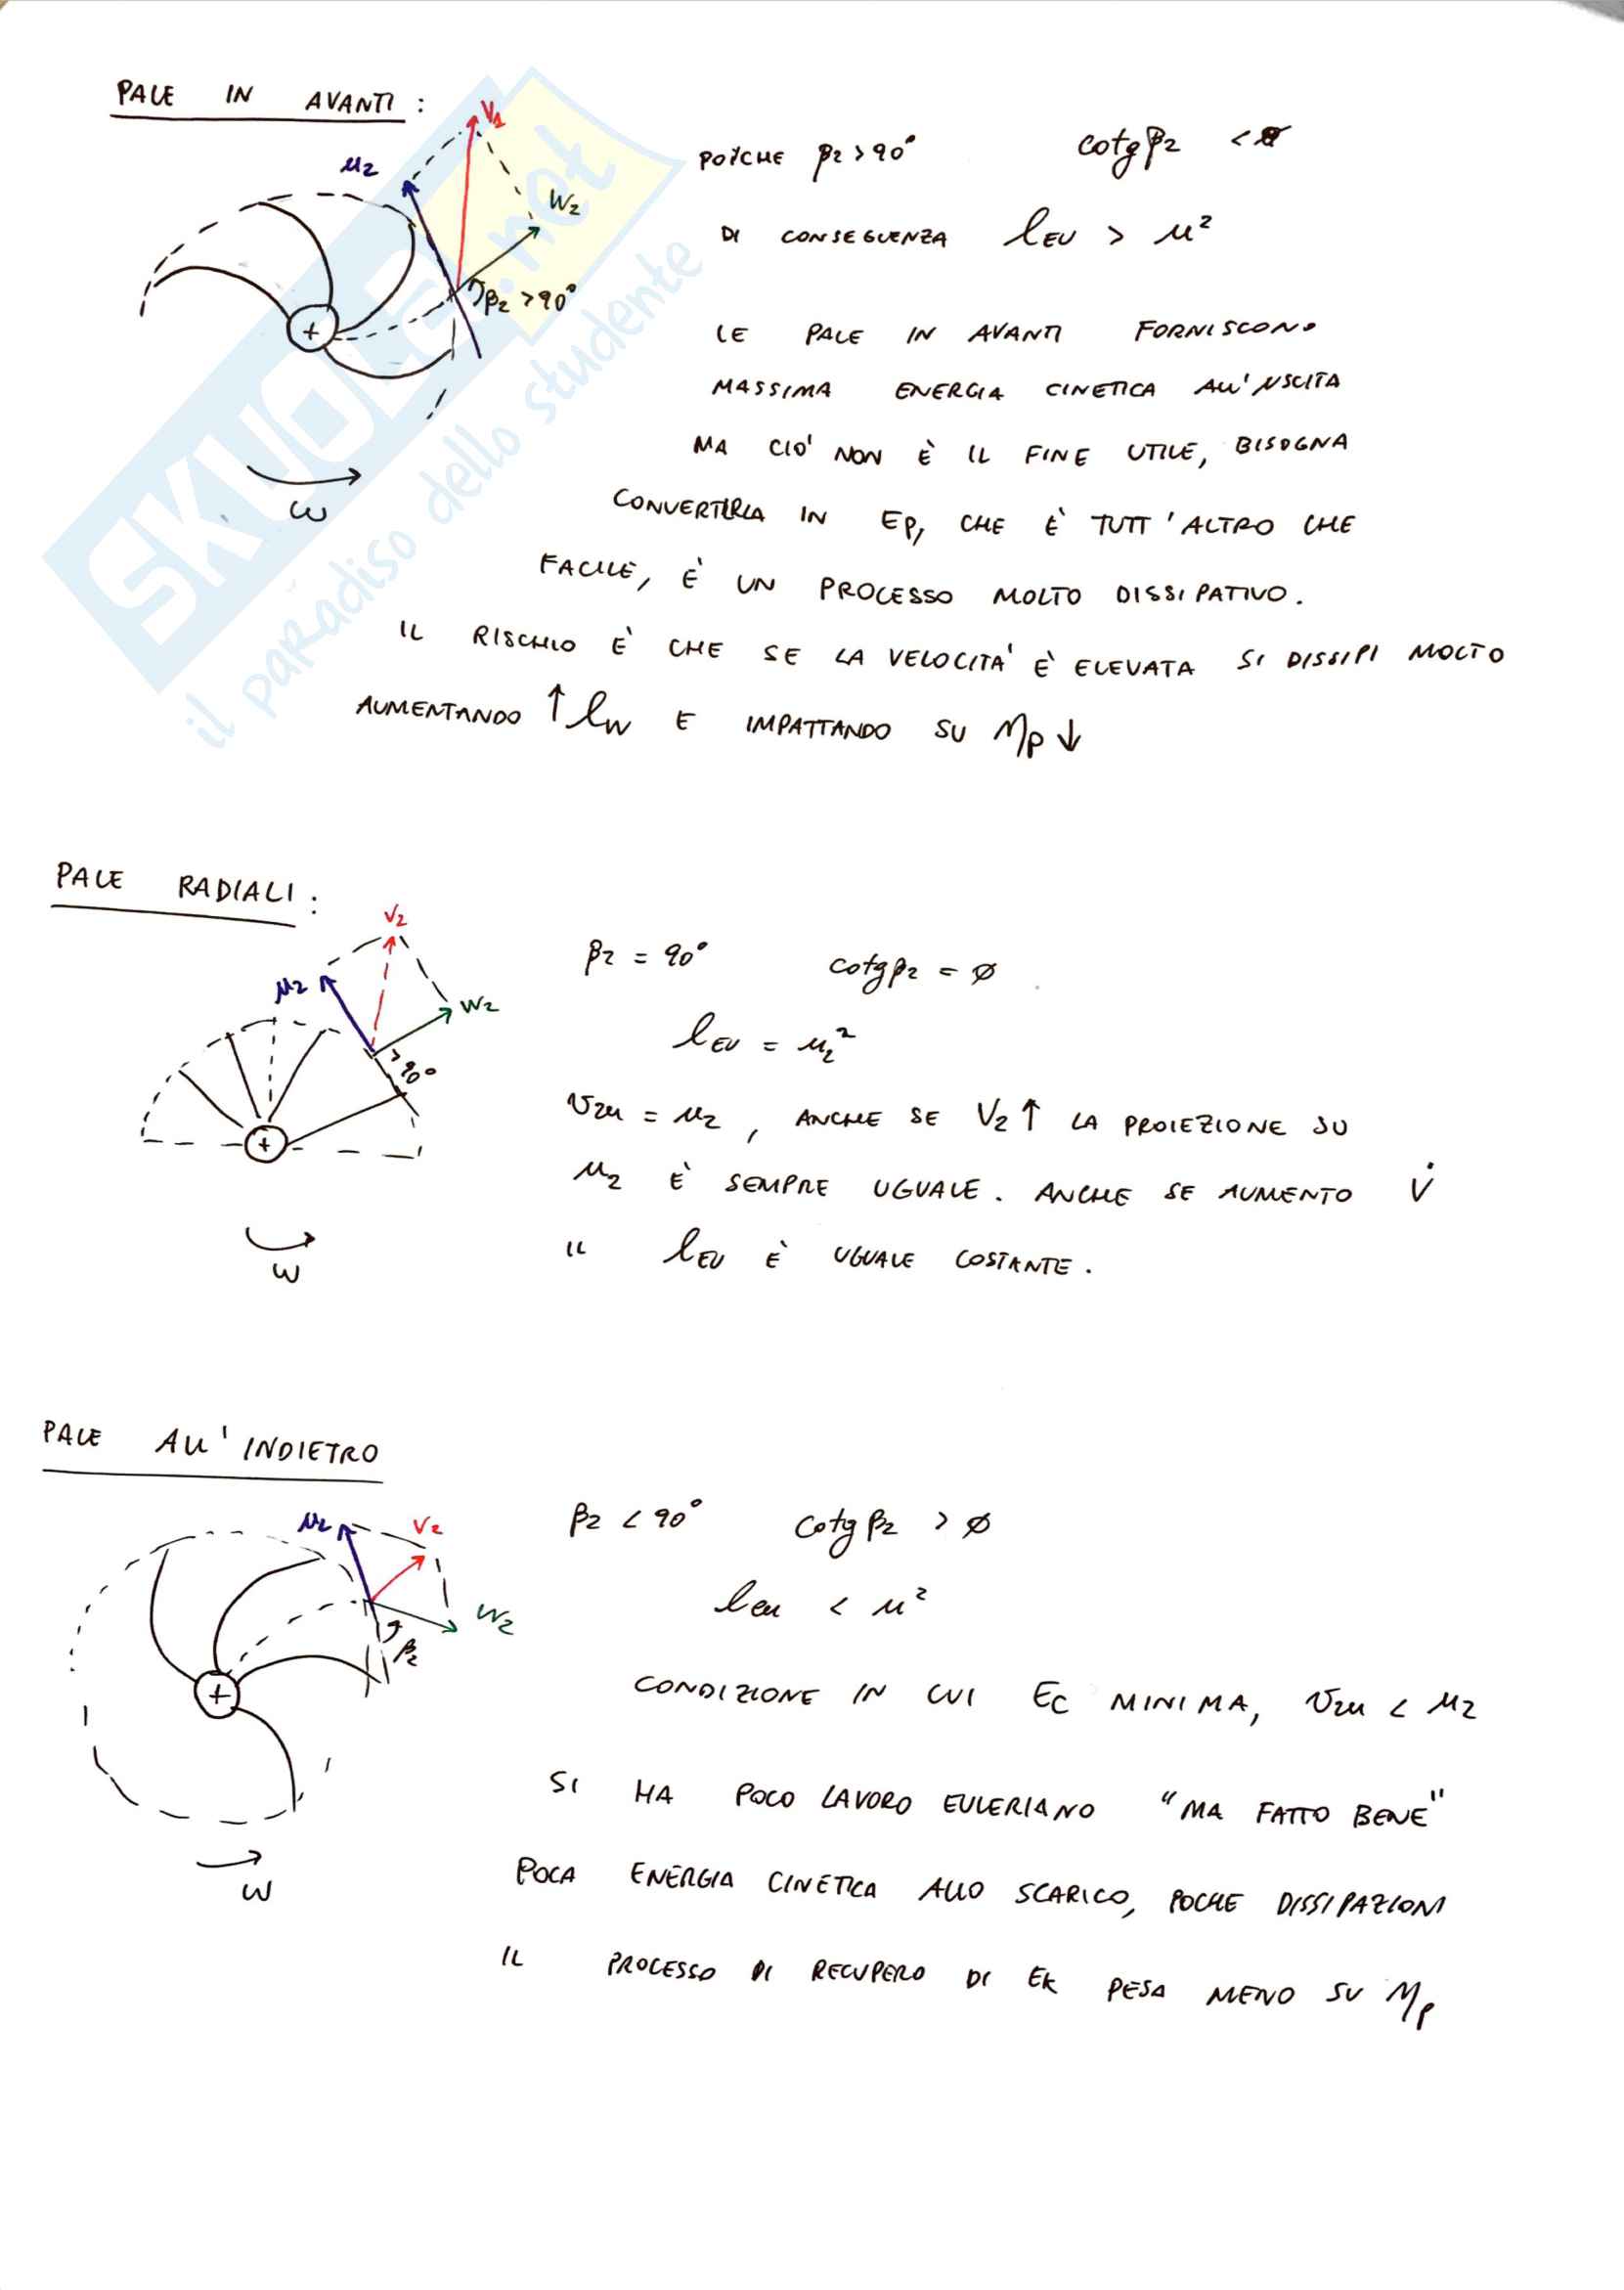 PALE IN AVANTI :
V1
u2
W2
β2 > 90°
ω
POICHE β2 > 90° cotg β2 < 0
DI CONSEGUENZA lEU > u²
LE PALE IN AVANTI FORNISCONO
MASSIMA ENERGIA CINETICA ALL'USCITA
MA CIO' NON È IL FINE UTILE, BISOGNA
CONVERTIRLA IN EP, CHE È TUTT'ALTRO CHE
FACILE, È UN PROCESSO MOLTO DISSIPATIVO.
IL RISCHIO È CHE SE LA VELOCITA' È ELEVATA SI DISSIPI MOLTO
AUMENTANDO ↑ lW E IMPATTANDO SU ηp ↓
SKUOLA.net
il paradiso dello studente
PALE RADIALI :
V2
u2
W2
90°
ω
β2 = 90° cotg β2 = ø
lEU = u2²
v2u = u2 , ANCHE SE V2 ↑ LA PROIEZIONE SU
u2 È SEMPRE UGUALE. ANCHE SE AUMENTO V̇
IL lEU È UGUALE COSTANTE.
PALE ALL'INDIETRO
u2
V2
W2
β2
ω
β2 < 90° cotg β2 > ø
leu < u²
CONDIZIONE IN CUI EC MINIMA, v2u < u2
SI HA POCO LAVORO EULERIANO "MA FATTO BENE"
POCA ENERGIA CINETICA ALLO SCARICO, POCHE DISSIPAZIONI
IL PROCESSO DI RECUPERO DI EK PESA MENO SU ηp